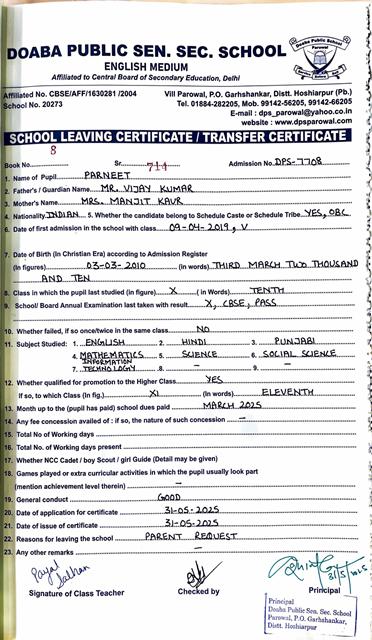 DOABA PUBLIC SEN. SEC. SCHOOL
Doaba Public School
Parowal
ENGLISH MEDIUM
Affiliated to Central Board of Secondary Education, Delhi
Affiliated No. CBSE/AFF/1630281 /2004
School No. 20273
Vill Parowal, P.O. Garhshankar, Distt. Hoshiarpur (Pb.)
Tel. 01884-282205, Mob. 99142-56205, 99142-66205
E-mail : dps_parowal@yahoo.co.in
website : www.dpsparowal.com
SCHOOL LEAVING CERTIFICATE / TRANSFER CERTIFICATE
Book No. 8 Sr. 714 Admission No. DPS-7708
1. Name of Pupil PARNEET
2. Father's / Guardian Name MR. VIJAY KUMAR
3. Mother's Name MRS. MANJIT KAUR
4. Nationality INDIAN 5. Whether the candidate belong to Schedule Caste or Schedule Tribe YES, OBC
6. Date of first admission in the school with class 09-04-2019, V
7. Date of Birth (in Christian Era) according to Admission Register
(In figures) 03-03-2010 (in words) THIRD MARCH TWO THOUSAND
AND TEN
8. Class in which the pupil last studied (in figure) X ( in Words) TENTH
9. School/ Board Annual Examination last taken with result X, CBSE, PASS
10. Whether failed, if so once/twice in the same class NO
11. Subject Studied: 1. ENGLISH 2. HINDI 3. PUNJABI
4. MATHEMATICS 5. SCIENCE 6. SOCIAL SCIENCE
7. INFORMATION TECHNOLOGY 8. – 9. –
12. Whether qualified for promotion to the Higher Class YES
If so, to which Class (In fig.) XI (In words) ELEVENTH
13. Month up to the (pupil has paid) school dues paid MARCH 2025
14. Any fee concession availed of : if so, the nature of such concession –
15. Total No of Working days
16. Total No. of Working days present
17. Whether NCC Cadet / boy Scout / girl Guide (Detail may be given)
18. Games played or extra curricular activities in which the pupil usually look part
(mention achievement level therein) –
19. General conduct GOOD
20. Date of application for certificate 31-05-2025
21. Date of issue of certificate 31-05-2025
22. Reasons for leaving the school PARENT REQUEST
23. Any other remarks –
31/5/2025
Signature of Class Teacher Checked by Principal
Principal
Doaba Public Sen. Sec. School
Parowal, P.O. Garhshankar,
Distt. Hoshiarpur